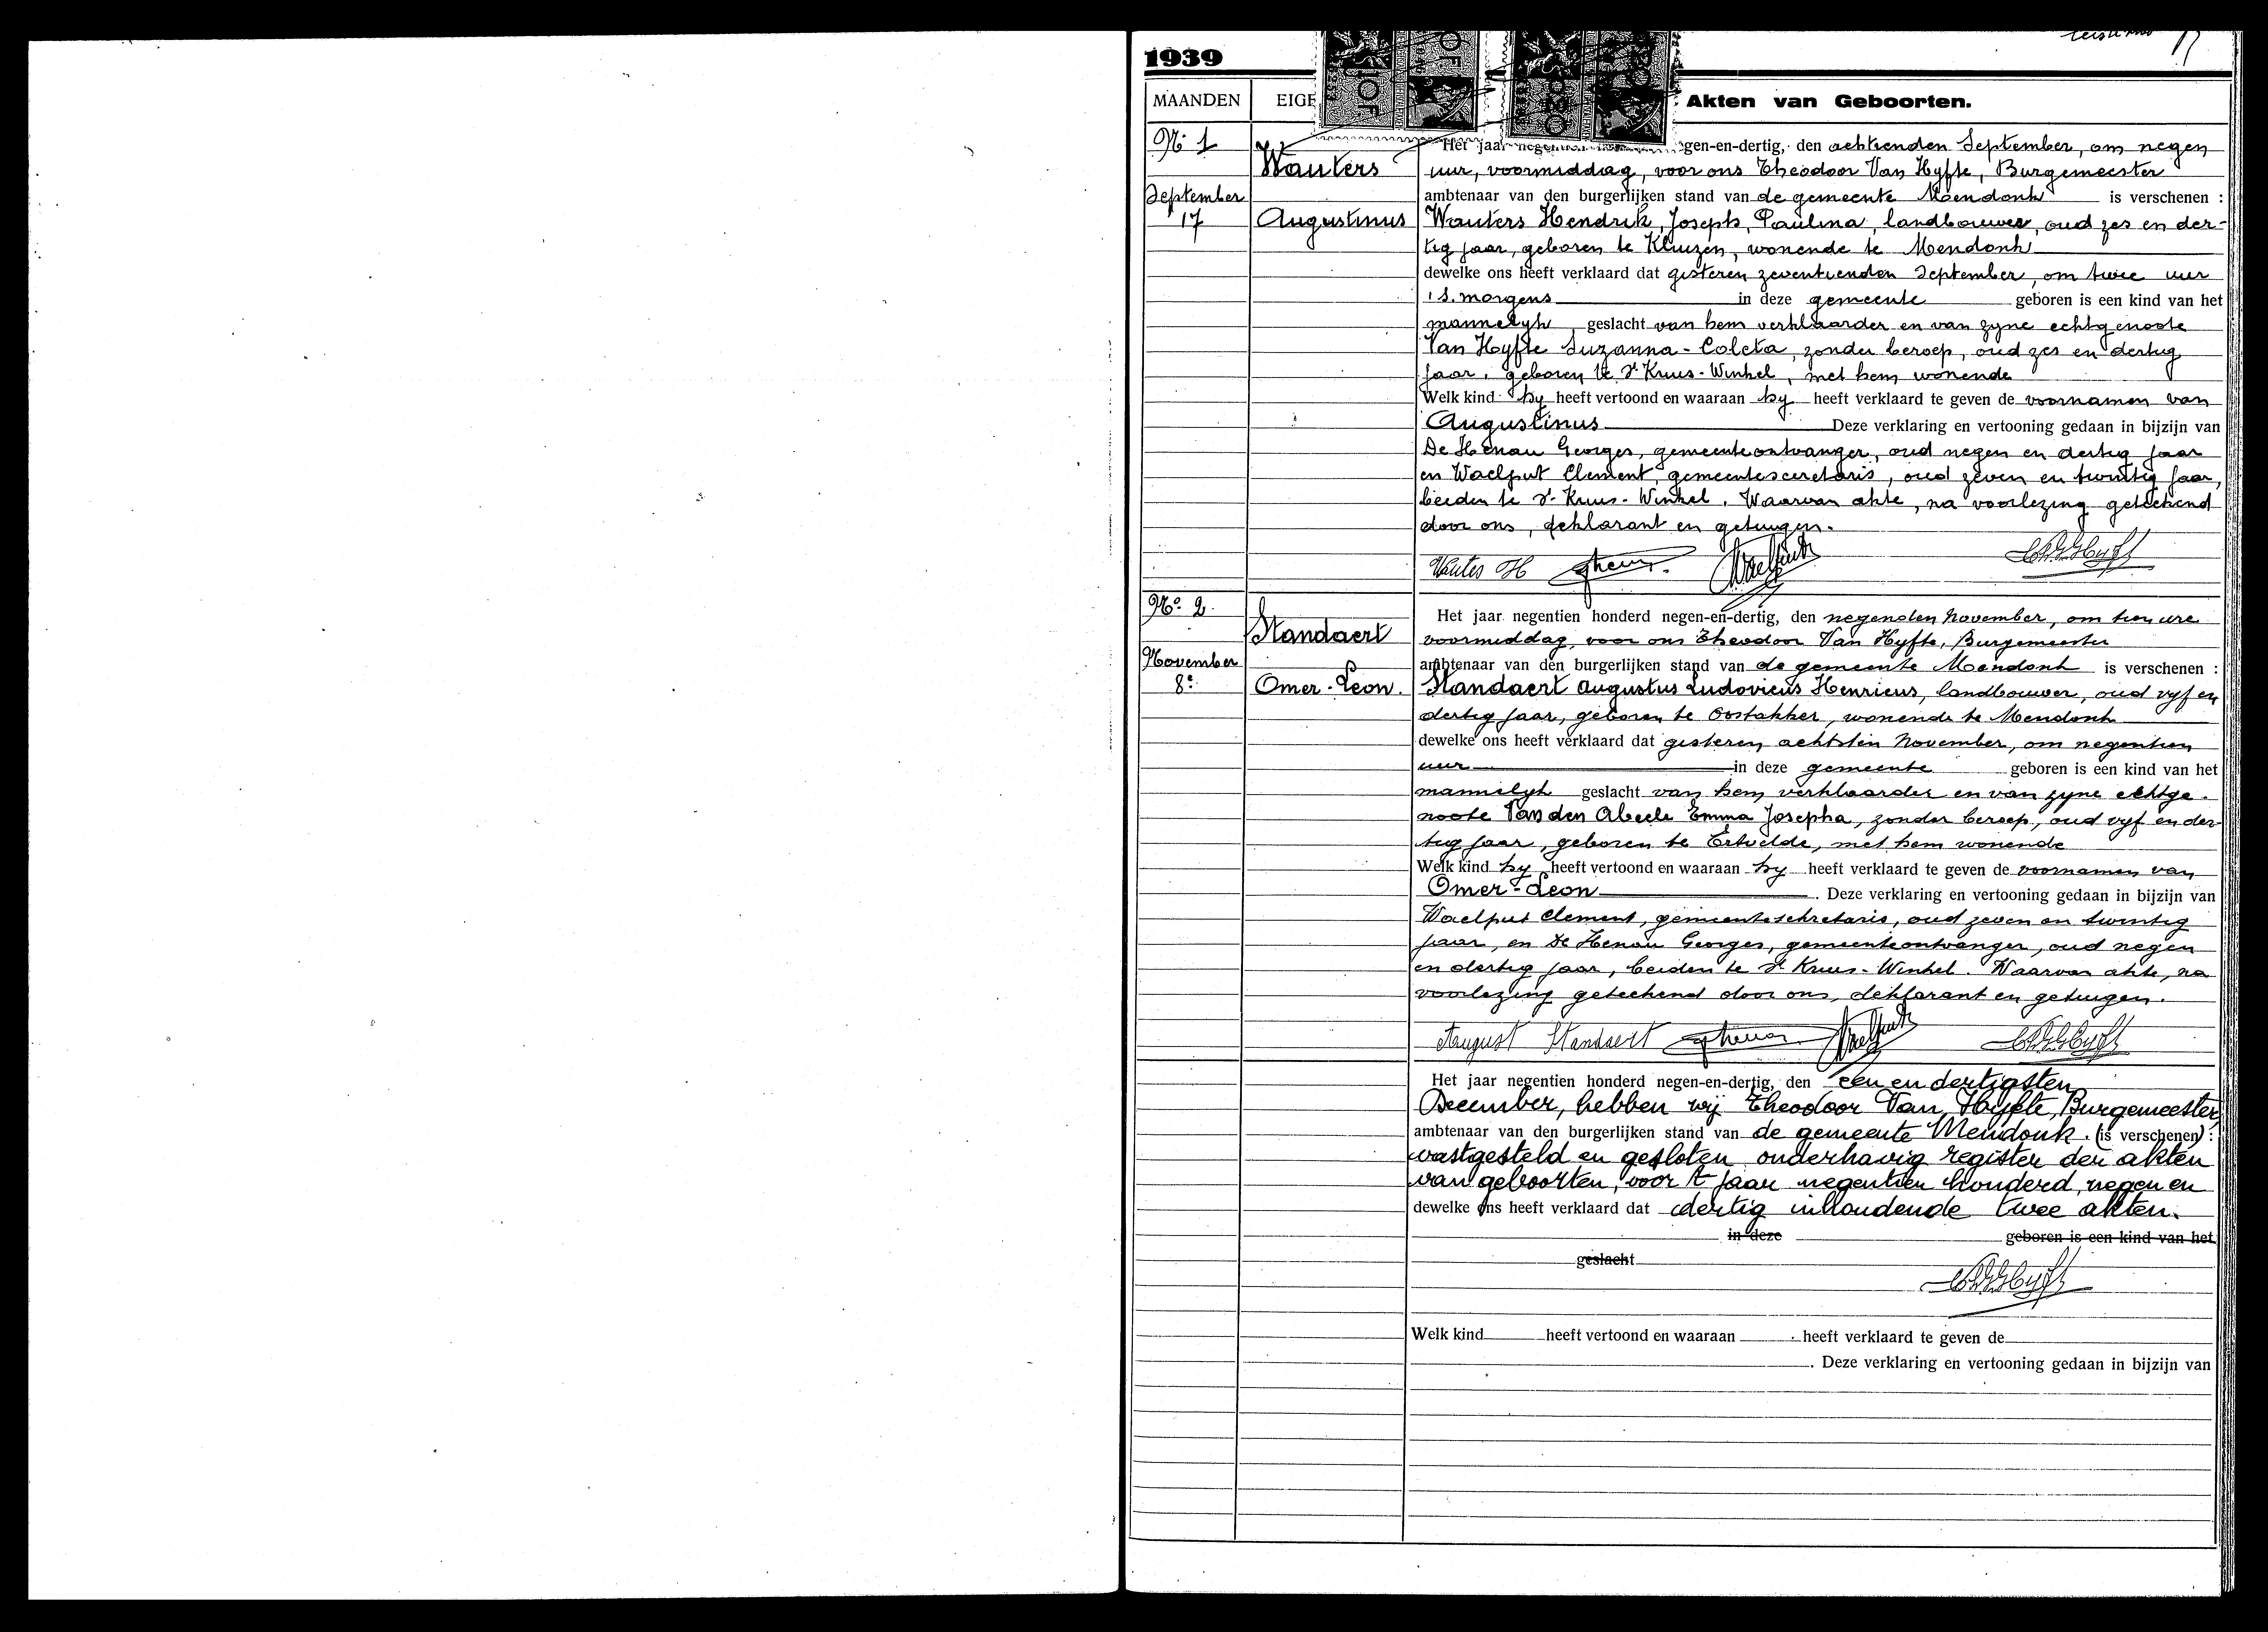 1939
MAANDEN EIGE Akten van Geboorten.
No 1
Wauters
September
17
Augustinus
Het jaar negen-en-dertig, den achtienden September, om negen
uur, voormiddag, voor ons Theodoor Van Hyfte, Burgemeester
ambtenaar van den burgerlijken stand van de gemeente Mendonk is verschenen :
Wauters Hendrik, Joseph, Paulina, landbouwer, oud zes en der-
tig jaar, geboren te Kluizen, wonende te Mendonk
dewelke ons heeft verklaard dat gisteren zeventienden September, om twee uur
's morgens in deze gemeente geboren is een kind van het
mannelyk geslacht van hem verklaarder en van zyne echtgenoote
Van Hyfte Suzanna-Coleta, zonder beroep, oud zes en dertig
jaar, geboren te St Kruis-Winkel, met hem wonende
Welk kind hy heeft vertoond en waaraan hy heeft verklaard te geven de voornamen van
Augustinus Deze verklaring en vertooning gedaan in bijzijn van
De Henau Georges, gemeenteontvanger, oud negen en dertig jaar
en Waelput Clement, gemeentesecretaris, oud zeven en twintig jaar,
beiden te St Kruis-Winkel. Waarvan akte, na voorlezing geteekend
door ons, deklarant en getuigen.
Wauters H
No. 2.
Standaert
November
8e
Omer-Leon.
Het jaar negentien honderd negen-en-dertig, den negenden November, om tien ure
voormiddag, voor ons Theodoor Van Hyfte, Burgemeester
ambtenaar van den burgerlijken stand van de gemeente Mendonk is verschenen :
Standaert Augustus Ludovicus Henricus, landbouwer, oud vyf en
dertig jaar, geboren te Oostakker, wonende te Mendonk
dewelke ons heeft verklaard dat gisteren achtsten November, om negentien
uur in deze gemeente geboren is een kind van het
mannelyk geslacht van hem verklaarder en van zyne echtge-
noote Van den Abeele Emma Josepha, zonder beroep, oud vyf en der-
tig jaar, geboren te Ertvelde, met hem wonende
Welk kind hy heeft vertoond en waaraan hy heeft verklaard te geven de voornamen van
Omer-Leon. Deze verklaring en vertooning gedaan in bijzijn van
Waelput Clement, gemeentesekretaris, oud zeven en twintig
jaar, en De Henau Georges, gemeenteontvanger, oud negen
en dertig jaar, beiden te St Kruis-Winkel. Waarvan akte, na
voorlezing geteekend door ons, deklarant en getuigen.
August Standaert
Het jaar negentien honderd negen-en-dertig, den een en dertigsten
December, hebben wij Theodoor Van Hyfte, Burgemeester
ambtenaar van den burgerlijken stand van de gemeente Mendonk. (is verschenen) :
vastgesteld en gesloten onderhavig register der akten
van geboorten, voor 't jaar negentien honderd, negen en
dewelke ons heeft verklaard dat dertig inhoudende twee akten.
in deze geboren is een kind van het
geslacht
Welk kind heeft vertoond en waaraan heeft verklaard te geven de
. Deze verklaring en vertooning gedaan in bijzijn van